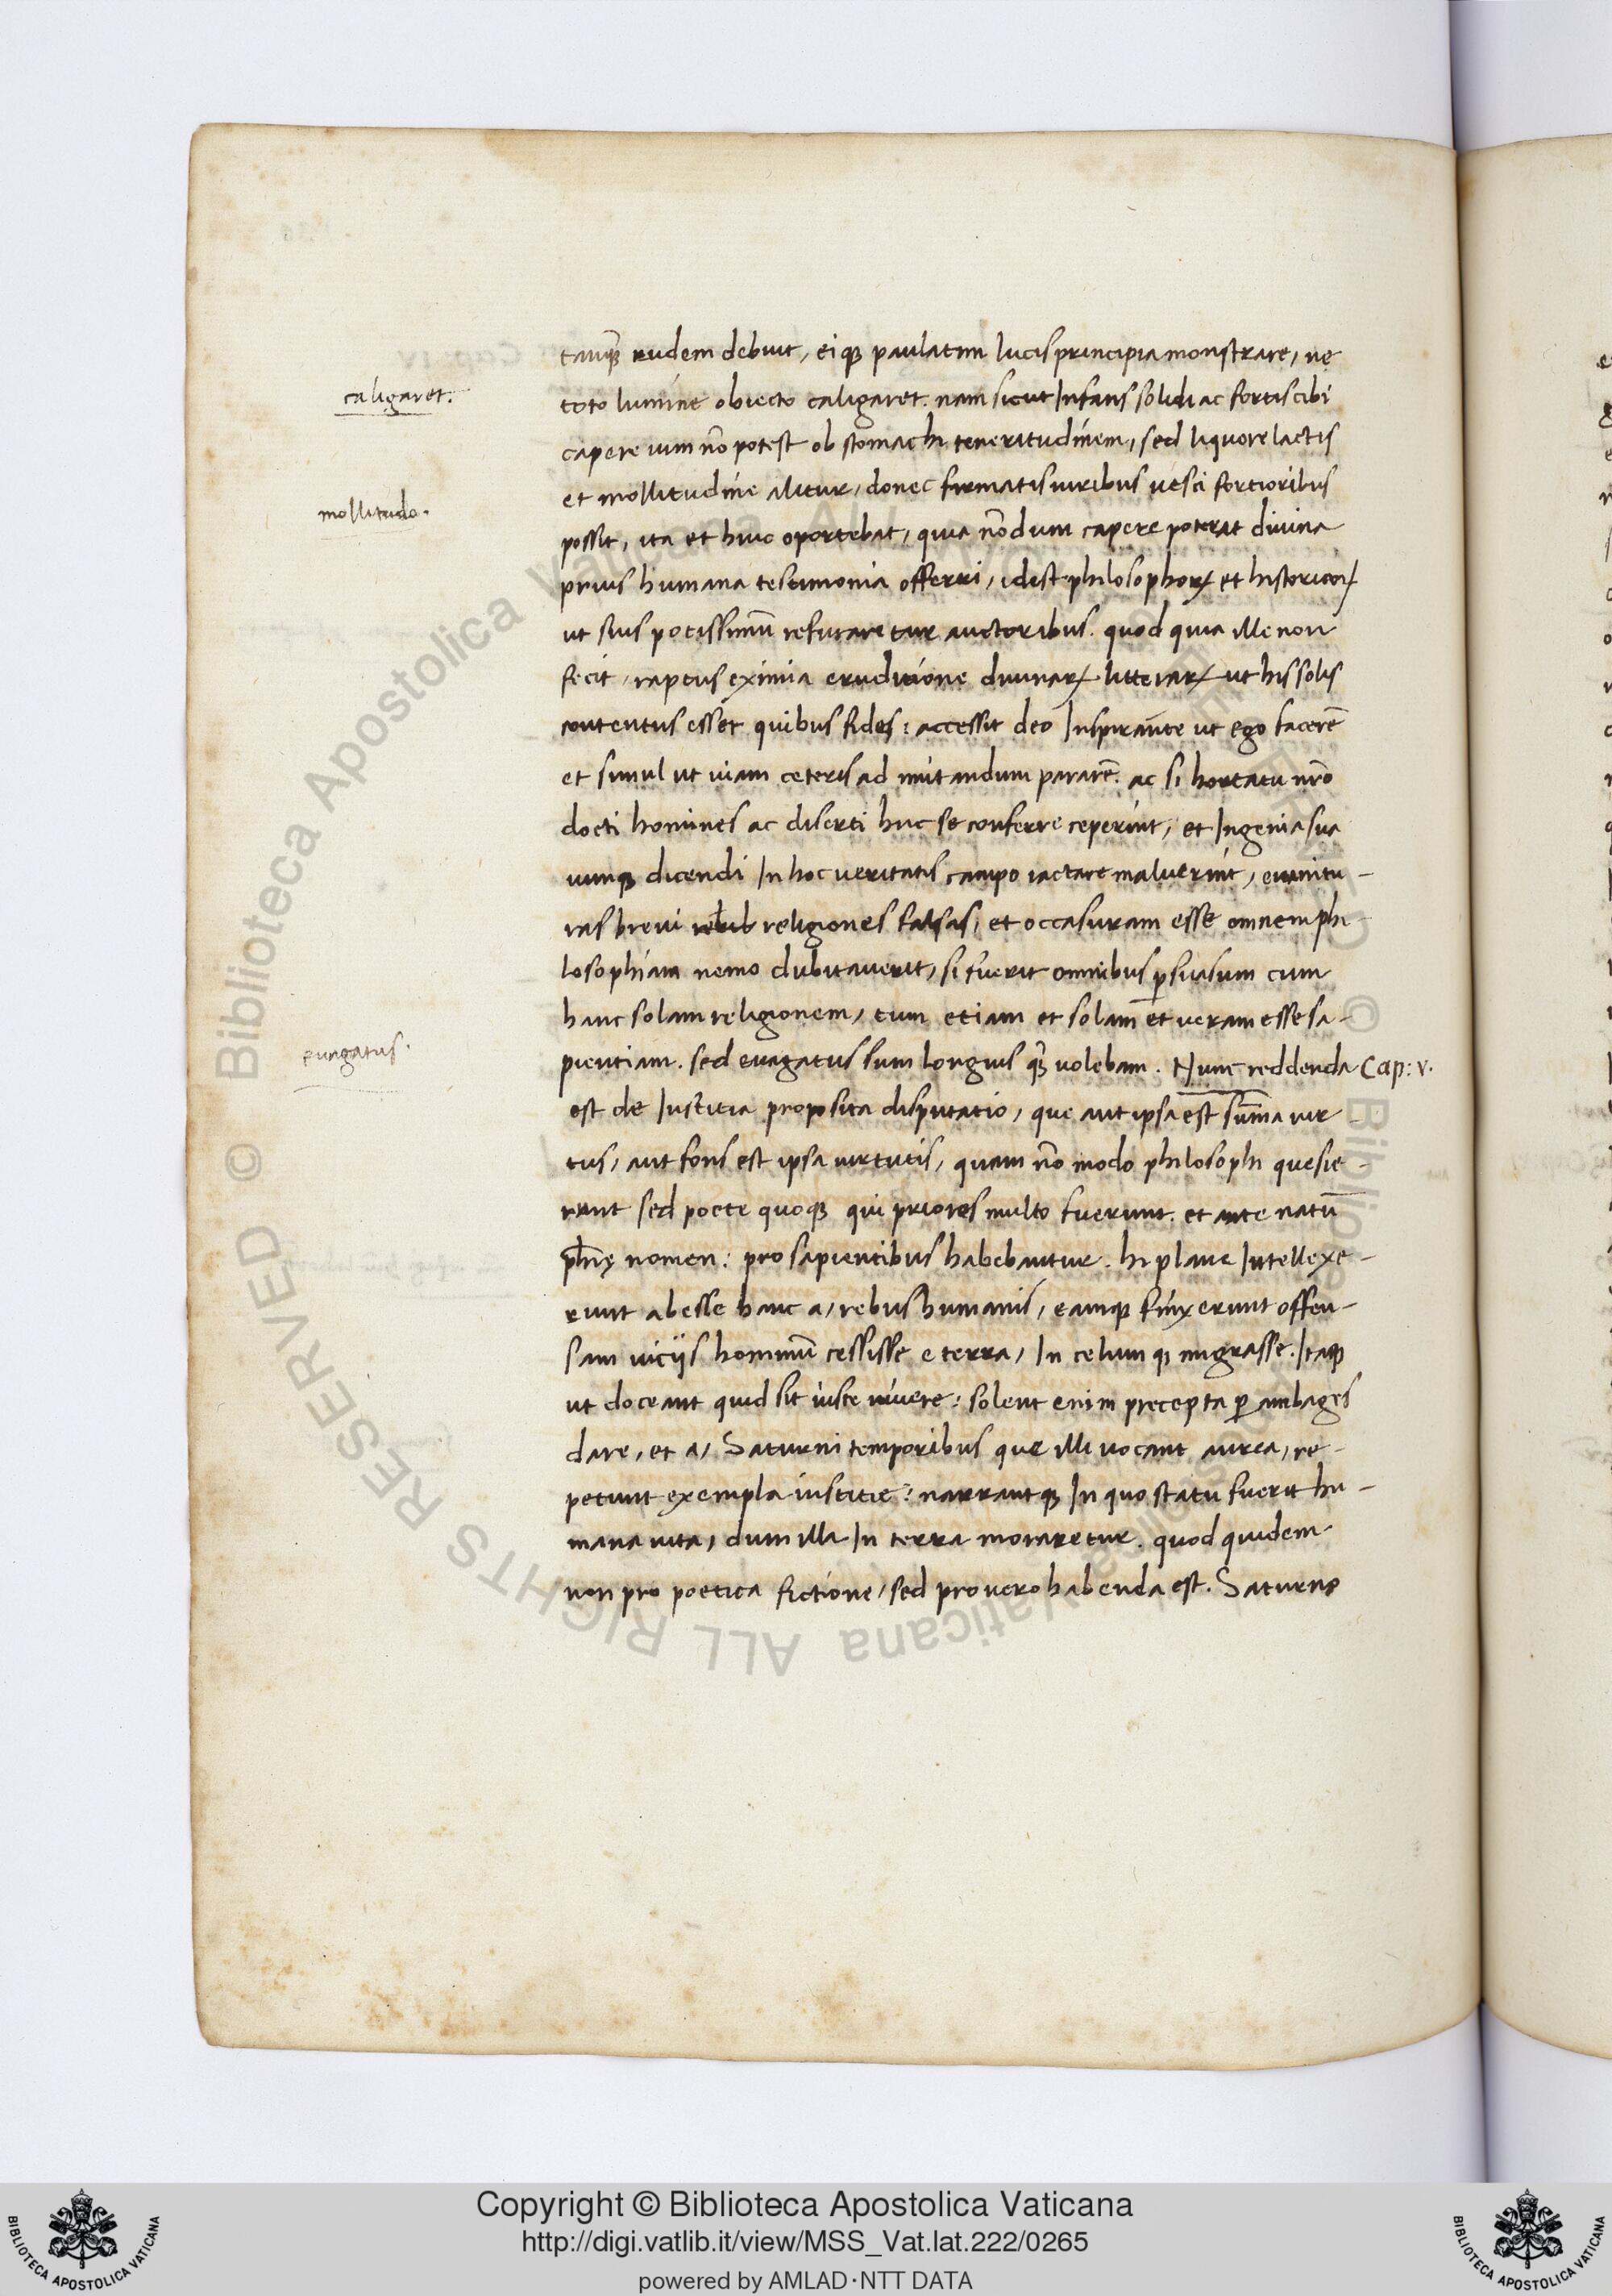 tamq̃ rudem debuit, eiq; paulatim lucis principia monstrare, ne
caligaret.
toto lumine obiecto caligaret. nam sicut Infans solidi ac fortis cibi
capere uim nõ potest ob stomachi teneritudinem, sed liquore lactis
et mollitudine alitur, donec firmatis uiribus uesci fortioribus
mollitudo.
possit, ita et huic oportebat, quia nõdum capere poterat diuina
prius humana testimonia offerri, idest philosophoꝝ et historicoꝝ
ut suis potissimũ refutaretur auctoribus. quod quia ille non
fecit, raptus eximia eruditione diuinaꝝ litteraꝝ ut his solis
contentus esset quibus fides: accessit deo Inspirante ut ego facerẽ
et simul ut uiam ceteris ad imitandum pararẽ. ac si hortatu nr̃o
docti homines ac diserti huc se conferre ceperint, et Ingenia sua
uimq; dicendi In hoc ueritatis campo iactare maluerint, euanitu-
ras breui religiones falsas, et occasuram esse omnem phi-
losophiam nemo dubitauerit, si fuerit omnibus ꝑsuasum cum
hanc solam religionem, tum etiam et solam et ueram esse sa-
euagatus.
pientiam. sed euagatus sum longius q̃ uolebam. Nunc reddenda Cap: v.
est de Iusticia proposita disputatio, que aut ipsa est sũma uir
tus, aut fons est ipsa uirtutis, quam nõ modo philosophi quesie-
runt sed poete quoq; qui priores multo fuerunt. et ante natũ
ph̃ię nomen: pro sapientibus habebantur. hi plane Intellexe-
runt abesse hanc a, rebus humanis, eamq; finxerunt offen-
sam uicijs hominũ cessisse e terra, In celumq; migrasse. Itaq;
ut doceant quid sit iuste uiuere: solent enim precepta ꝑ ambages
dare, et a, Saturni temporibus que illi uocant aurea, re-
petunt exempla iusticie: narrantq; In quo statu fuerit hu-
mana uita, dum illa In terra moraretur. quod quidem
non pro poetica fictione, sed pro uero habenda est. Saturno
© Biblioteca Apostolica Vaticana ALL RIGHTS RESERVED
Copyright © Biblioteca Apostolica Vaticana
http://digi.vatlib.it/view/MSS_Vat.lat.222/0265
powered by AMLAD·NTT DATA
BIBLIOTECA APOSTOLICA VATICANA
BIBLIOTECA APOSTOLICA VATICANA